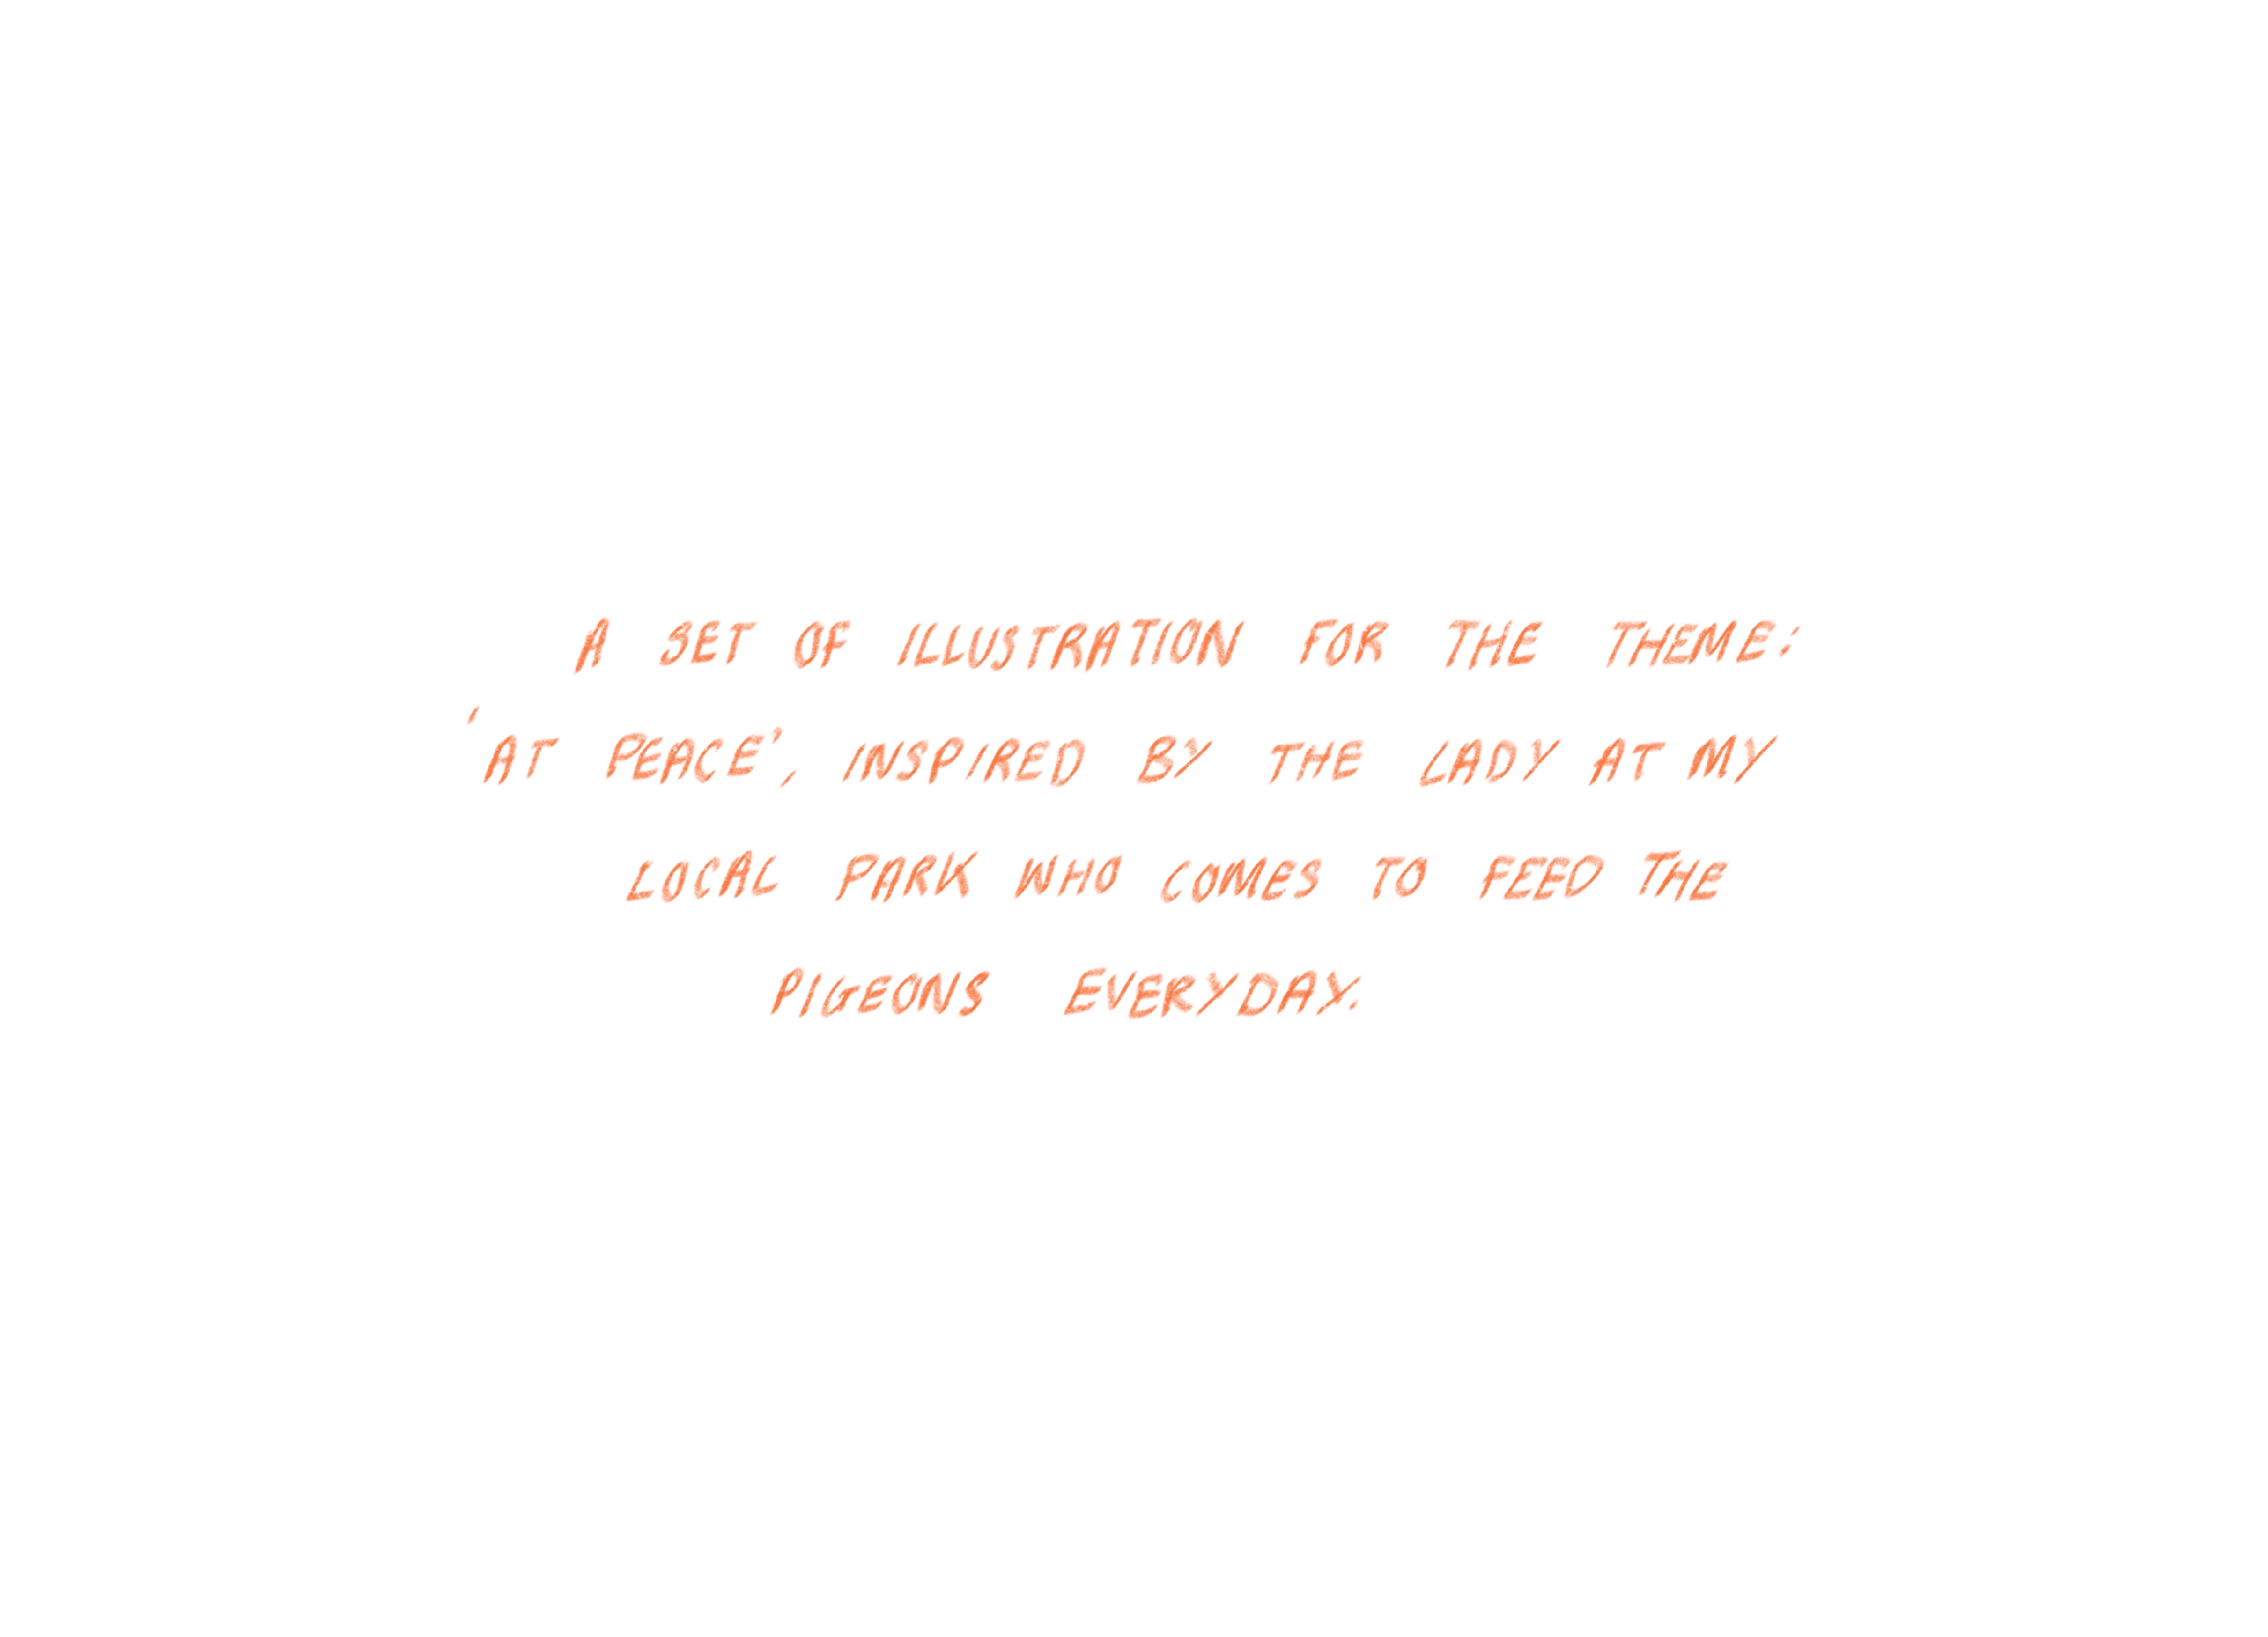 A SET OF ILLUSTRATION FOR THE THEME:
'AT PEACE', INSPIRED BY THE LADY AT MY
LOCAL PARK WHO COMES TO FEED THE
PIGEONS EVERYDAY.